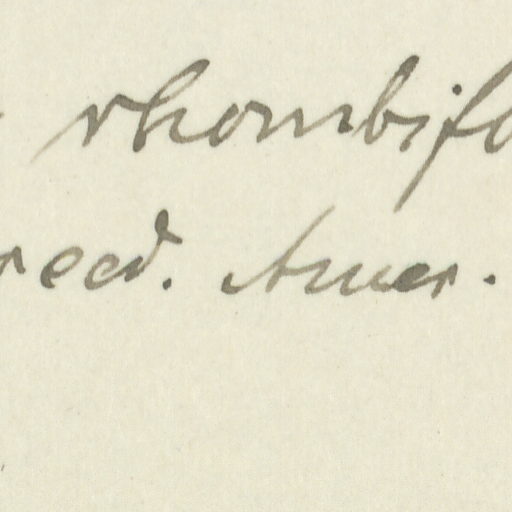 rhombifo
eed. Amer.